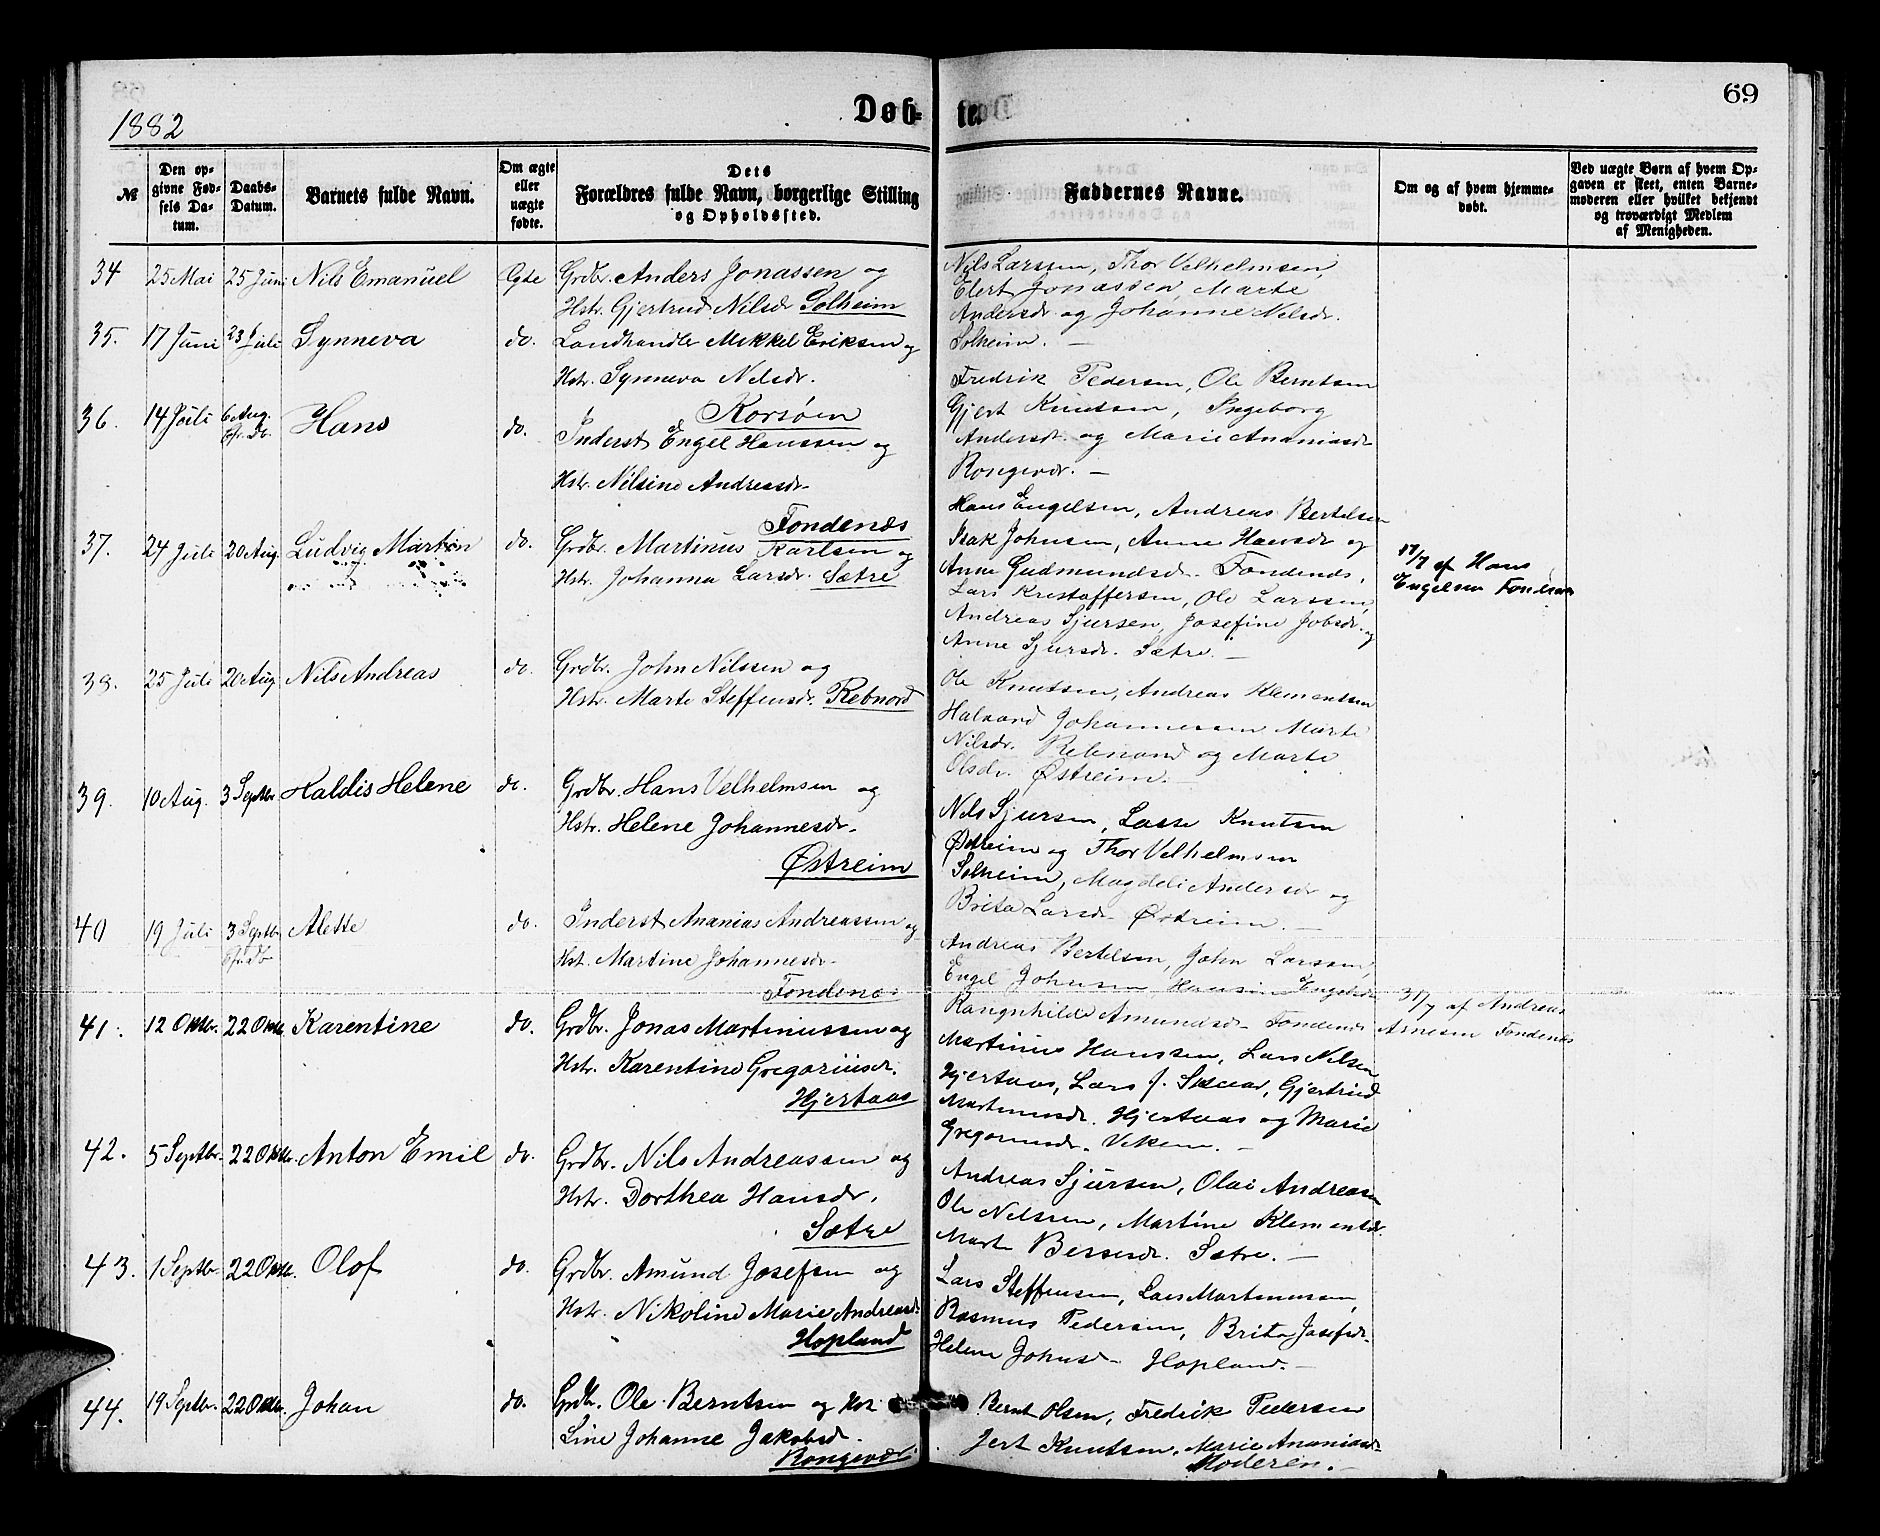 69
1882
Døb-
te.
№
Den op-
givne Fød-
sels Da-
tum.
Daabs-
Datum.
Barnets fulde Navn.
Om ægte
eller
uægte
fødte.
Dets
Forældres fulde Navn, borgerlige Stilling
og Opholdssted.
Faddernes Navne.
Om og af hvem hjemme-
døbt.
Ved uægte Børn af hvem Op-
gaven er skeet, enten Barne-
moderen eller hvilket bekjendt
og troværdigt Medlem
af Menigheden.
34 25 Mai 25 Juni Nils Emanuel Egte Grdbr. Anders Jonassen og
Hstr. Gjertrud Nilsdr Solheim
Nils Larssen, Thor Velhelmsen,
Elert Jonassen, Marte
Andersdr og Johanne Nelsdr.
Solheim. —
35. 17 Juni 23 Juli Synneva do. Landhandler Mikkel Eriksen og
Hstr. Synneva Nelsdr.
Korsøen
Fredrik Pedersen, Ole Berntsen
Gjert Knutsen, Ingeborg
Andersdr. og Marie Ananiasdr
Rongevær. —
36. 14 Juli 6 Aug. Hans do. Inderst Engel Hanssen og
Hstr. Nilsine Andreasdr.
Fondenæs
Hans Engelsen, Andreas Bertelsen
Isak Johnsen, Anne Hansdr og
Anne Gudmundsdr. Fondenæs,
17/7 af Hans
Engelsen Fondenæs
37. 24 Juli 20 Aug. Ludvig Martin do. Grdbr. Martinus Karlsen og
Hstr. Johanna Larsdr. Sætre
Lars Kristoffersen, Ole Larssen,
Andreas Sjursen, Josefine Jobsdr. og
Anne Sjursdr. Sætre. —
38. 25 Juli 20 Aug Nils Andreas do. Grdbr. John Nilssen og
Hstr. Marte Steffensdr. Rebnord
Ole Knutsen, Andreas Klementsen
Halvard Johannessen Marte
Nilsdr. Rebnord og Marte
Olsdr. Østreim. —
39. 10 Aug. 3 Septbr Haldis Helene do. Grdbr. Hans Velhelmsen og
Hstr. Helene Johannesdr.
Østreim
Nels Sjursen, Lasse Knutsen
Østreim og Thor Velhelmsen
Solheim, Magdeli Andersdr og
Brita Larsdr Østreim. —
40 19 Juli 3 Septbr Alette do. Inderst Ananias Andreassen og
Hst. Martine Johannesdr.
Fondenæs
Andreas Bertelsen, John Larssen,
Engel Johnsen, Hansine Engelsdr
Rangnhilde Amundsdr Fondenæs
31/7 af Andreas
Arnesen Fondenæs
41. 12 Oktbr. 22 Oktb. Karentine do. Grdbr. Jonas Martinussen og
Hstr. Karentine Gregoriusdr.
Hjertaas
Martinus Hanssen, Lars Nelsen
Hjertaas, Lars J. Skaar, Gjertrud
Martinusdr. Hjertaas og Marie
Gregoriusdr. Veken. —
42. 5 Septbr. 22 Oktb. Anton Emil do. Grdbr. Nils Andreassen og
Hstr. Dorthea Hansdr.
Sætre
Andreas Sjursen, Olai Andreasen
Ole Nelssen, Martine Klementsdr.
Marte Bessesdr. Sætre. —
43. 1 Septbr. 22 Oktb. Olof do. Grdbr. Amund Josefsen og
Hstr. Nikoline Marie Andreasdr.
Hopland
Lars Steffensen, Lars Martinussen,
Rasmus Pedersen, Brita Josefsdr.
Helene Johnsdr Hopland. —
44. 19 Septbr. 22 Oktb. Johan do. Grdbr. Ole Berntsen og
Line Johanne Jakobsdr.
Rongevær
Bernt Olsen, Fredrik Pedersen
Jert Knutsen, Marie Ananiasdr
Moderen. —